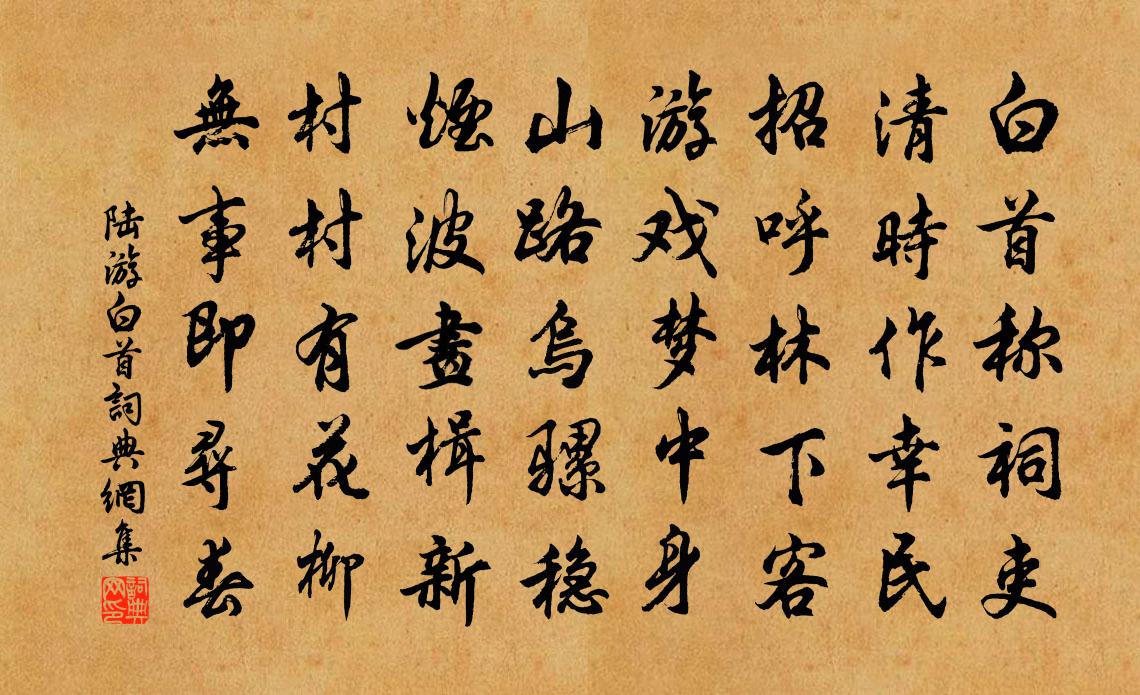 白首称祠吏
清時作幸民
招呼林下客
游戏梦中身
山路烏騾稳
煙波畫楫新
村村有花柳
無事即尋春
陆游白首詞典網集
詞典网印